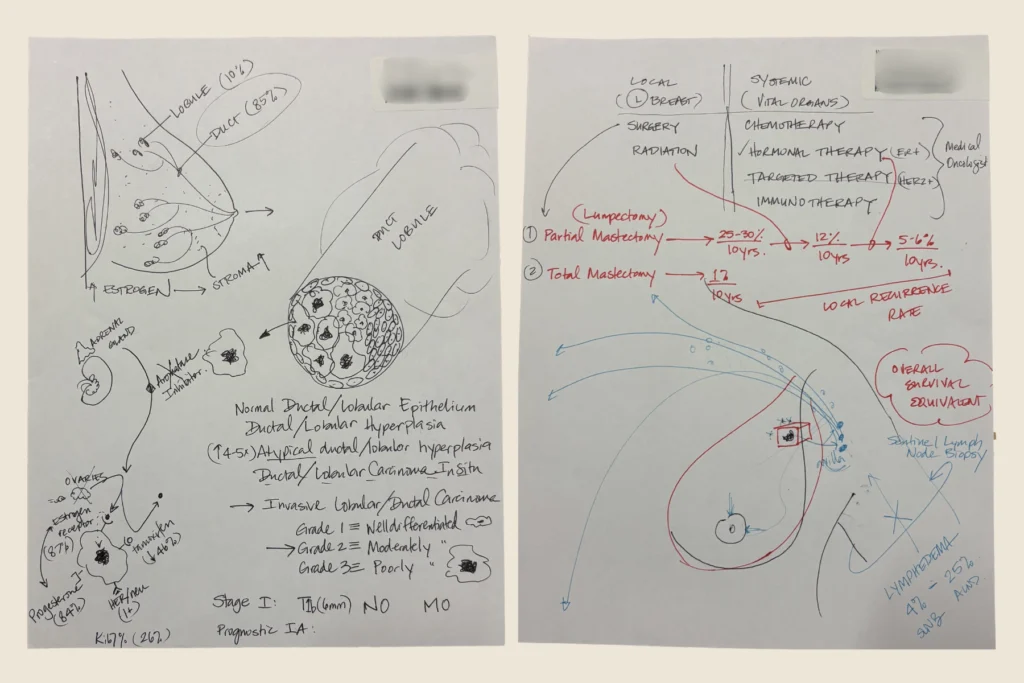 LOBULE (10%)
DUCT (85%)
STROMA
↑ ESTROGEN →
DUCT
LOBULE
ADRENAL
GLAND
Aromatase
Inhibitor
Normal Ductal/Lobular Epithelium
Ductal/Lobular Hyperplasia
(↑4-5x) Atypical ductal/lobular hyperplasia
Ductal/Lobular Carcinoma In Situ
→ Invasive Lobular/Ductal Carcinoma
Grade 1 ≡ Well differentiated
→ Grade 2 ≡ Moderately "
Grade 3 ≡ Poorly "
OVARIES
Estrogen
receptor
(87%)
Tamoxifen
(↓46%)
Progesterone
(84%)
HER/neu
(1+)
Ki67% (26%)
Stage I: T1b (6mm) N0 M0
Prognostic IA:
LOCAL
(L BREAST)
SURGERY
RADIATION
SYSTEMIC
(VITAL ORGANS)
CHEMOTHERAPY
✓HORMONAL THERAPY (ER+)
TARGETED THERAPY (HER2+)
IMMUNOTHERAPY
Medical
Oncologist
(Lumpectomy)
① Partial Mastectomy → 25-30%/10yrs. → 12%/10yrs. → 5-6%/10yrs.
② Total Mastectomy → 1%/10yrs
LOCAL RECURRENCE
RATE
OVERALL
SURVIVAL
EQUIVALENT
Sentinel Lymph
Node Biopsy
LYMPHEDEMA
4% - 25%
SLNB ALND